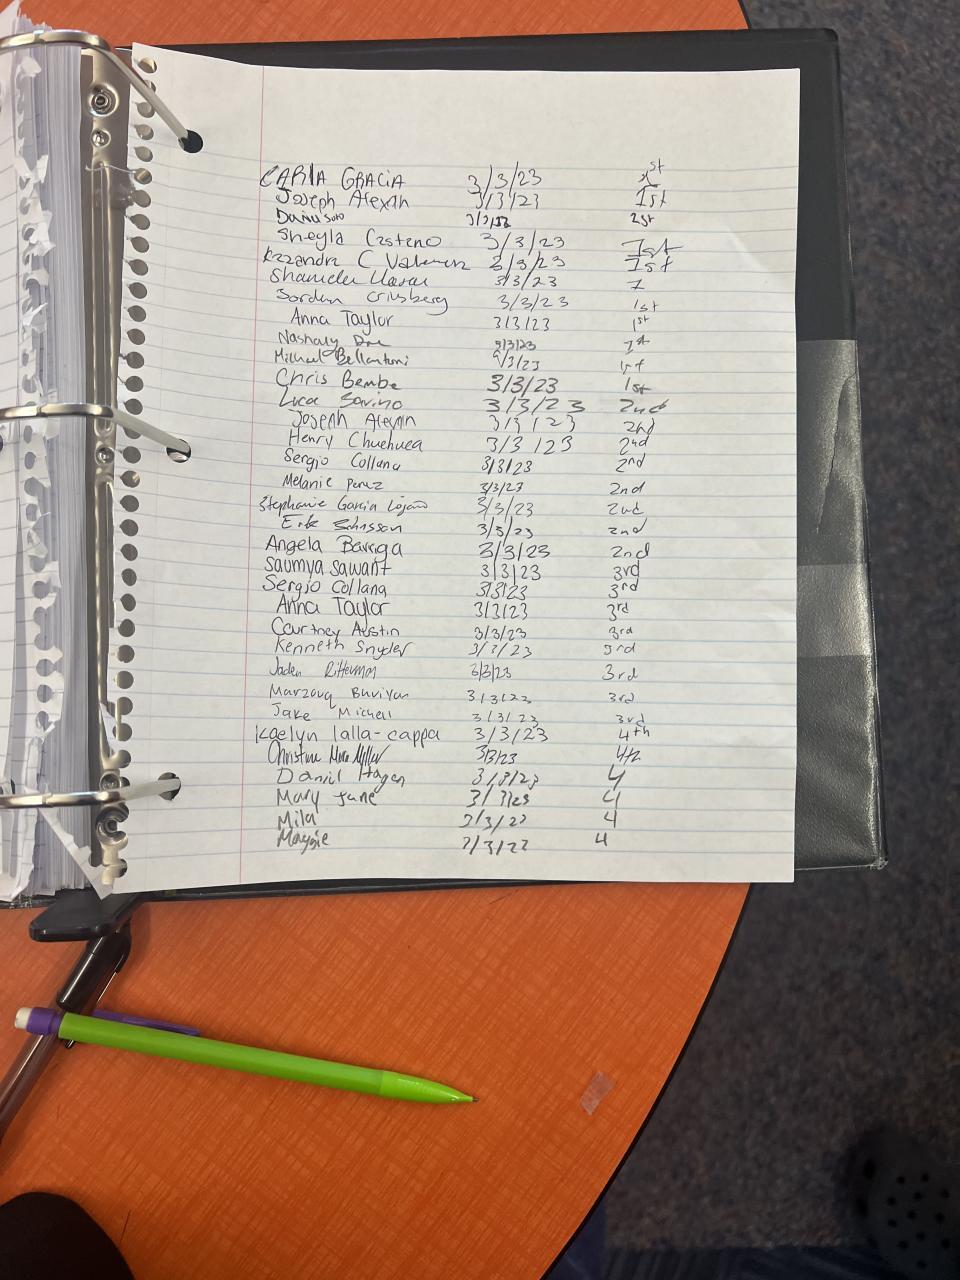 CARIA GRACIA 3/3/23 1st
Joseph Alexan 3/3/23 1st
3/3/23 1st
Sheyla Casteno 3/3/23 1st
C 3/3/23 1st
3/3/23 1
Jordan 3/3/23 1st
Anna Taylor 3/3/23 1st
Nashaly 3/3/23 1st
Michael Bellantoni 3/3/23 1st
Chris Bembe 3/3/23 1st
Luca Savino 3/3/23 2nd
Joseph Alexan 3/3/23 2nd
Henry Chuehuea 3/3/23 2nd
Sergio Collana 3/3/23 2nd
Melanie Perez 3/3/23 2nd
Stephanie Garcia Lojano 3/3/23 2nd
Erik Johnsson 3/3/23 2nd
Angela Barriga 3/3/23 2nd
Saumya Sawant 3/3/23 3rd
Sergio Collana 3/3/23 3rd
Anna Taylor 3/3/23 3rd
Courtney Austin 3/3/23 3rd
Kenneth Snyder 3/3/23 3rd
Jaden Ritterman 3/3/23 3rd
Marzouq Buviyan 3/3/23 3rd
Jake Michell 3/3/23 3rd
Kaelyn lalla-cappa 3/3/23 4th
Christine 3/3/23 4th
Daniel Hagen 3/3/23 4
Mary Jane 3/3/23 4
Mila 3/3/23 4
Maggie 3/3/23 4